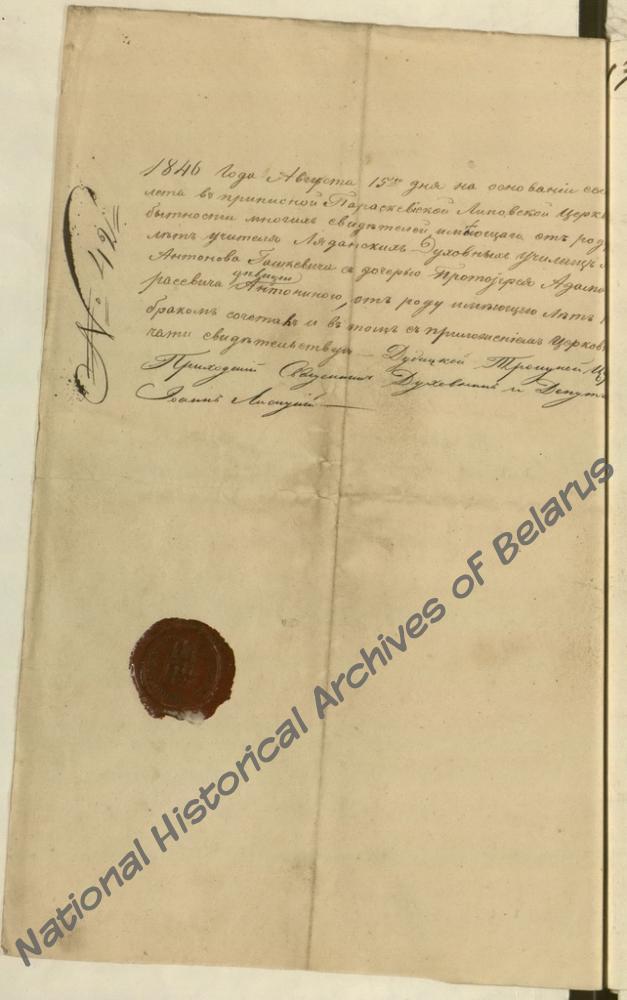 № 42
1846 Года Августа 15го дня на основаніи
лета въ приписной Параскевіской Липовской Церк
бытности многихъ свидѣтелей имѣющаго отъ роду
лѣтъ учителя Ляданскихъ Духовныхъ училищъ
Антонова Гашкевича съ дочерью Протоіерея Адама
девицею
расевича Антониною, отъ роду имѣющею лѣтъ
бракомъ сочетавъ и въ томъ съ приложеніемъ Церков
чати свидѣтельствую – Дудицкой Троицкой Ц
Приходскій Священникъ Духовникъ и Депут
Іоаннъ Лисицкій
National Historical Archives of Belarus